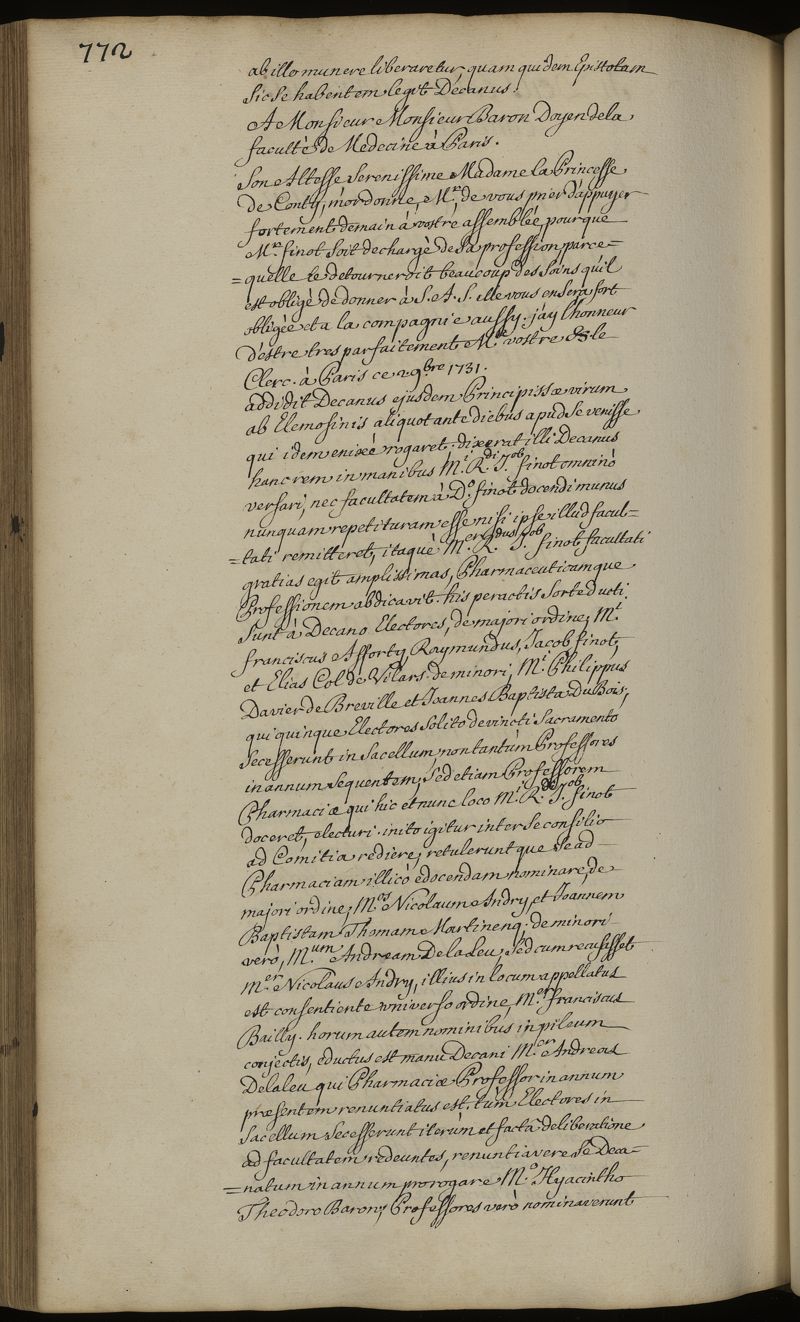 772
ab illo munere liberaretur, quam quidem Epistolam
sic se habentem legit Decanus.
A Monsieur Monsieur Baron Doyen de la
faculté de Medecine à Paris.
Son Altesse Serenissime Madame la Princesse
de Conty, m'ordonne, Mr. de vous prier d'appuyer
fortement demain à vostre assemblée, pour que
Mr. finot soit dechargé de sa profession, parce=
=quelle le detourneroit beaucoup des soins qu'il
est obligé de donner à S. A. S. elle vous en sera fort
obligée et a la compagnie aussy. j'ay l'honneur
d'estre tres parfaitement Mr. vostre &c le
Clerc. à Paris ce 2 9bre 1731.
addidit Decanus ejusdem Principissæ virum
ab Elemosinis aliquot ante diebus apud se venisse
qui idem enixè rogaret. dixerat illi Decanus
hanc rem in manibus Mi. Rdi. Job. finot omninò
versari, nec facultatem à Do. finot docendi munus
nunquam repetituram esse nisi ipse illud facul=
=tati remitteret, itaquè Mer. Rdus. Job. finot facultati
gratias egit amplissimas, Pharmaceuticamque
Professionem abdicavit. his peractis sorte ducti
sunt à Decano Electores, de majori ordine, Mi.
franciscus Afforty, Raymundus, Jacob finot,
et Elias Col de Vilars. de minori, Mi. Philippus
Davier de Breville et Joannes Baptista Du Bois,
qui quinque Electores solito devincti Sacramento
secesserunt in Sacellum, non tantùm Professores
in annum sequentem, sed etiam Professorem
Pharmaciæ qui hic et nunc loco Mi. Rdi. Job. finot
doceret, electuri. inito igitur inter se consilio
ad Comitia rediere, retuleruntque se ad
Pharmaciam illicò edocendam nominare, de
majori ordine, Mos. Nicolaum Andry, et Joannem
Baptistam Thomam Martinenq. de minori
verò, Mum. Andream De la Leu, sed cum recusisset
Mer. Nicolaus Andry, illius in locum appellatus
est consentiente universo ordine, Mer. franciscus
Bailly. horum autem nominibus in pileum
conjectis, eductus est manu Decani Mer. Andreas
Delaleu qui Pharmaciæ Professor in annum
præsentem renuntiatus est. tùm Electores in
Sacellum secesserunt iterùm et factâ deliberatione
ad facultatem redeuntes, renuntiavere se Deca=
=natum in annum prorogare Mo. Hyacintho
Theodoro Baron; Professores verò nominaverunt